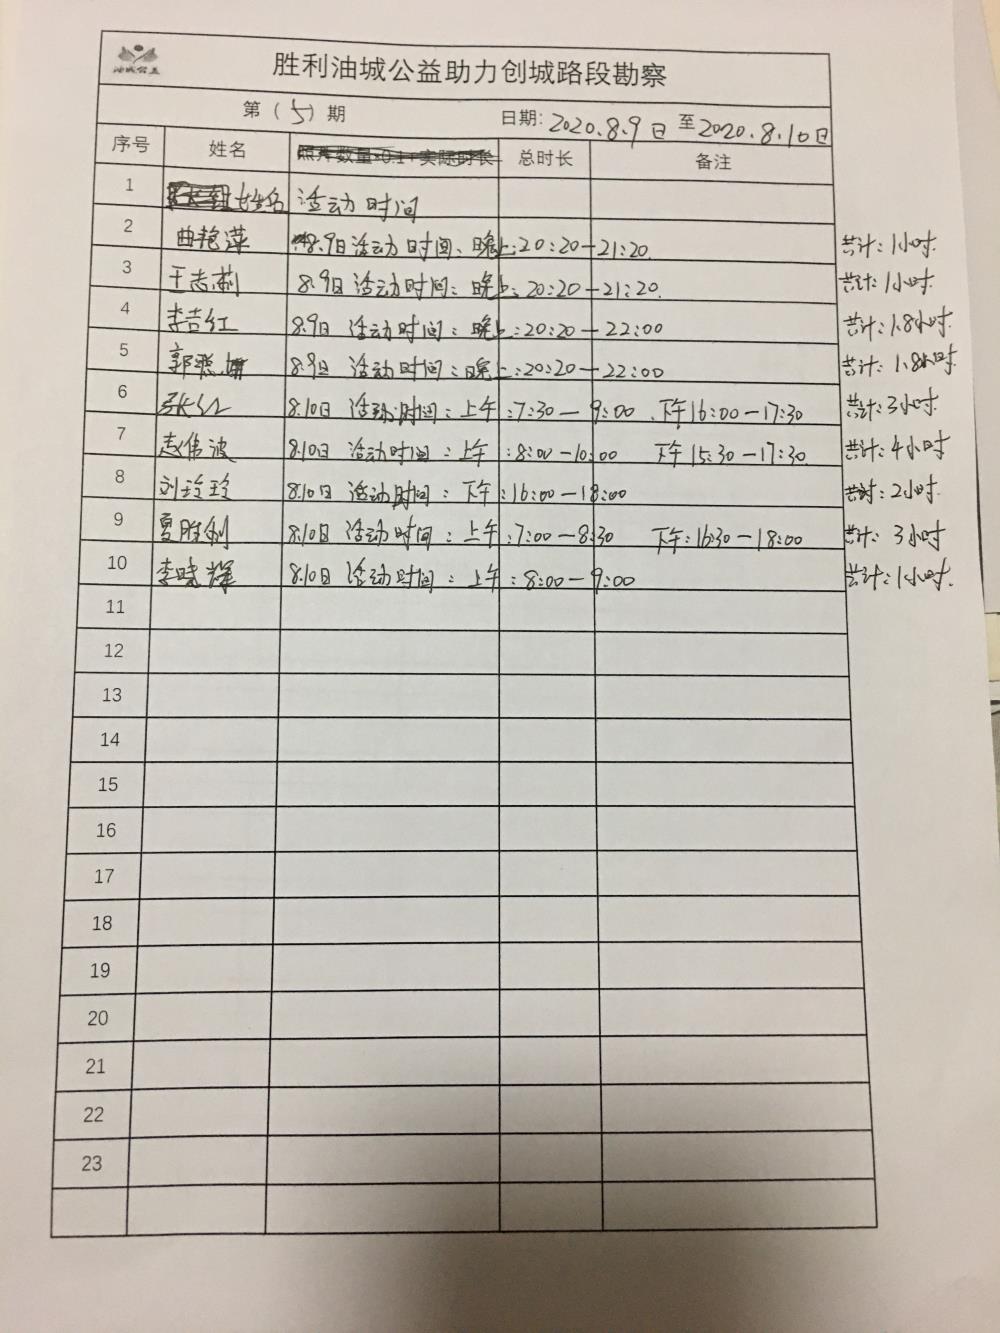 油城公益
胜利油城公益助力创城路段勘察
第（5）期 日期：2020.8.9日 至2020.8.10日
序号 姓名 照片数量*0.1+实际时长 总时长 备注
1 姓名 活动时间
2 曲艳萍 8.9日活动时间：晚上：20:20—21:20. 共计：1小时.
3 王志莉 8.9日活动时间：晚上：20:20—21:20. 共计：1小时.
4 李吉红 8.9日 活动时间：晚上：20:20—22:00 共计：1.8小时.
5 郭 8.9日 活动时间：晚上：20:20—22:00 共计：1.8小时.
6 张红 8.10日 活动时间：上午：7:30—9:00 下午16:00—17:30 共计：3小时.
7 赵伟波 8.10日 活动时间：上午：8:00—10:00 下午15:30—17:30. 共计：4小时
8 刘玲玲 8.10日 活动时间：下午：16:00—18:00 共计：2小时.
9 夏胜利 8.10日 活动时间：上午：7:00—8:30 下午：16:30—18:00 共计：3小时
10 李晓辉 8.10日 活动时间：上午：8:00—9:00 共计：1小时.
11
12
13
14
15
16
17
18
19
20
21
22
23